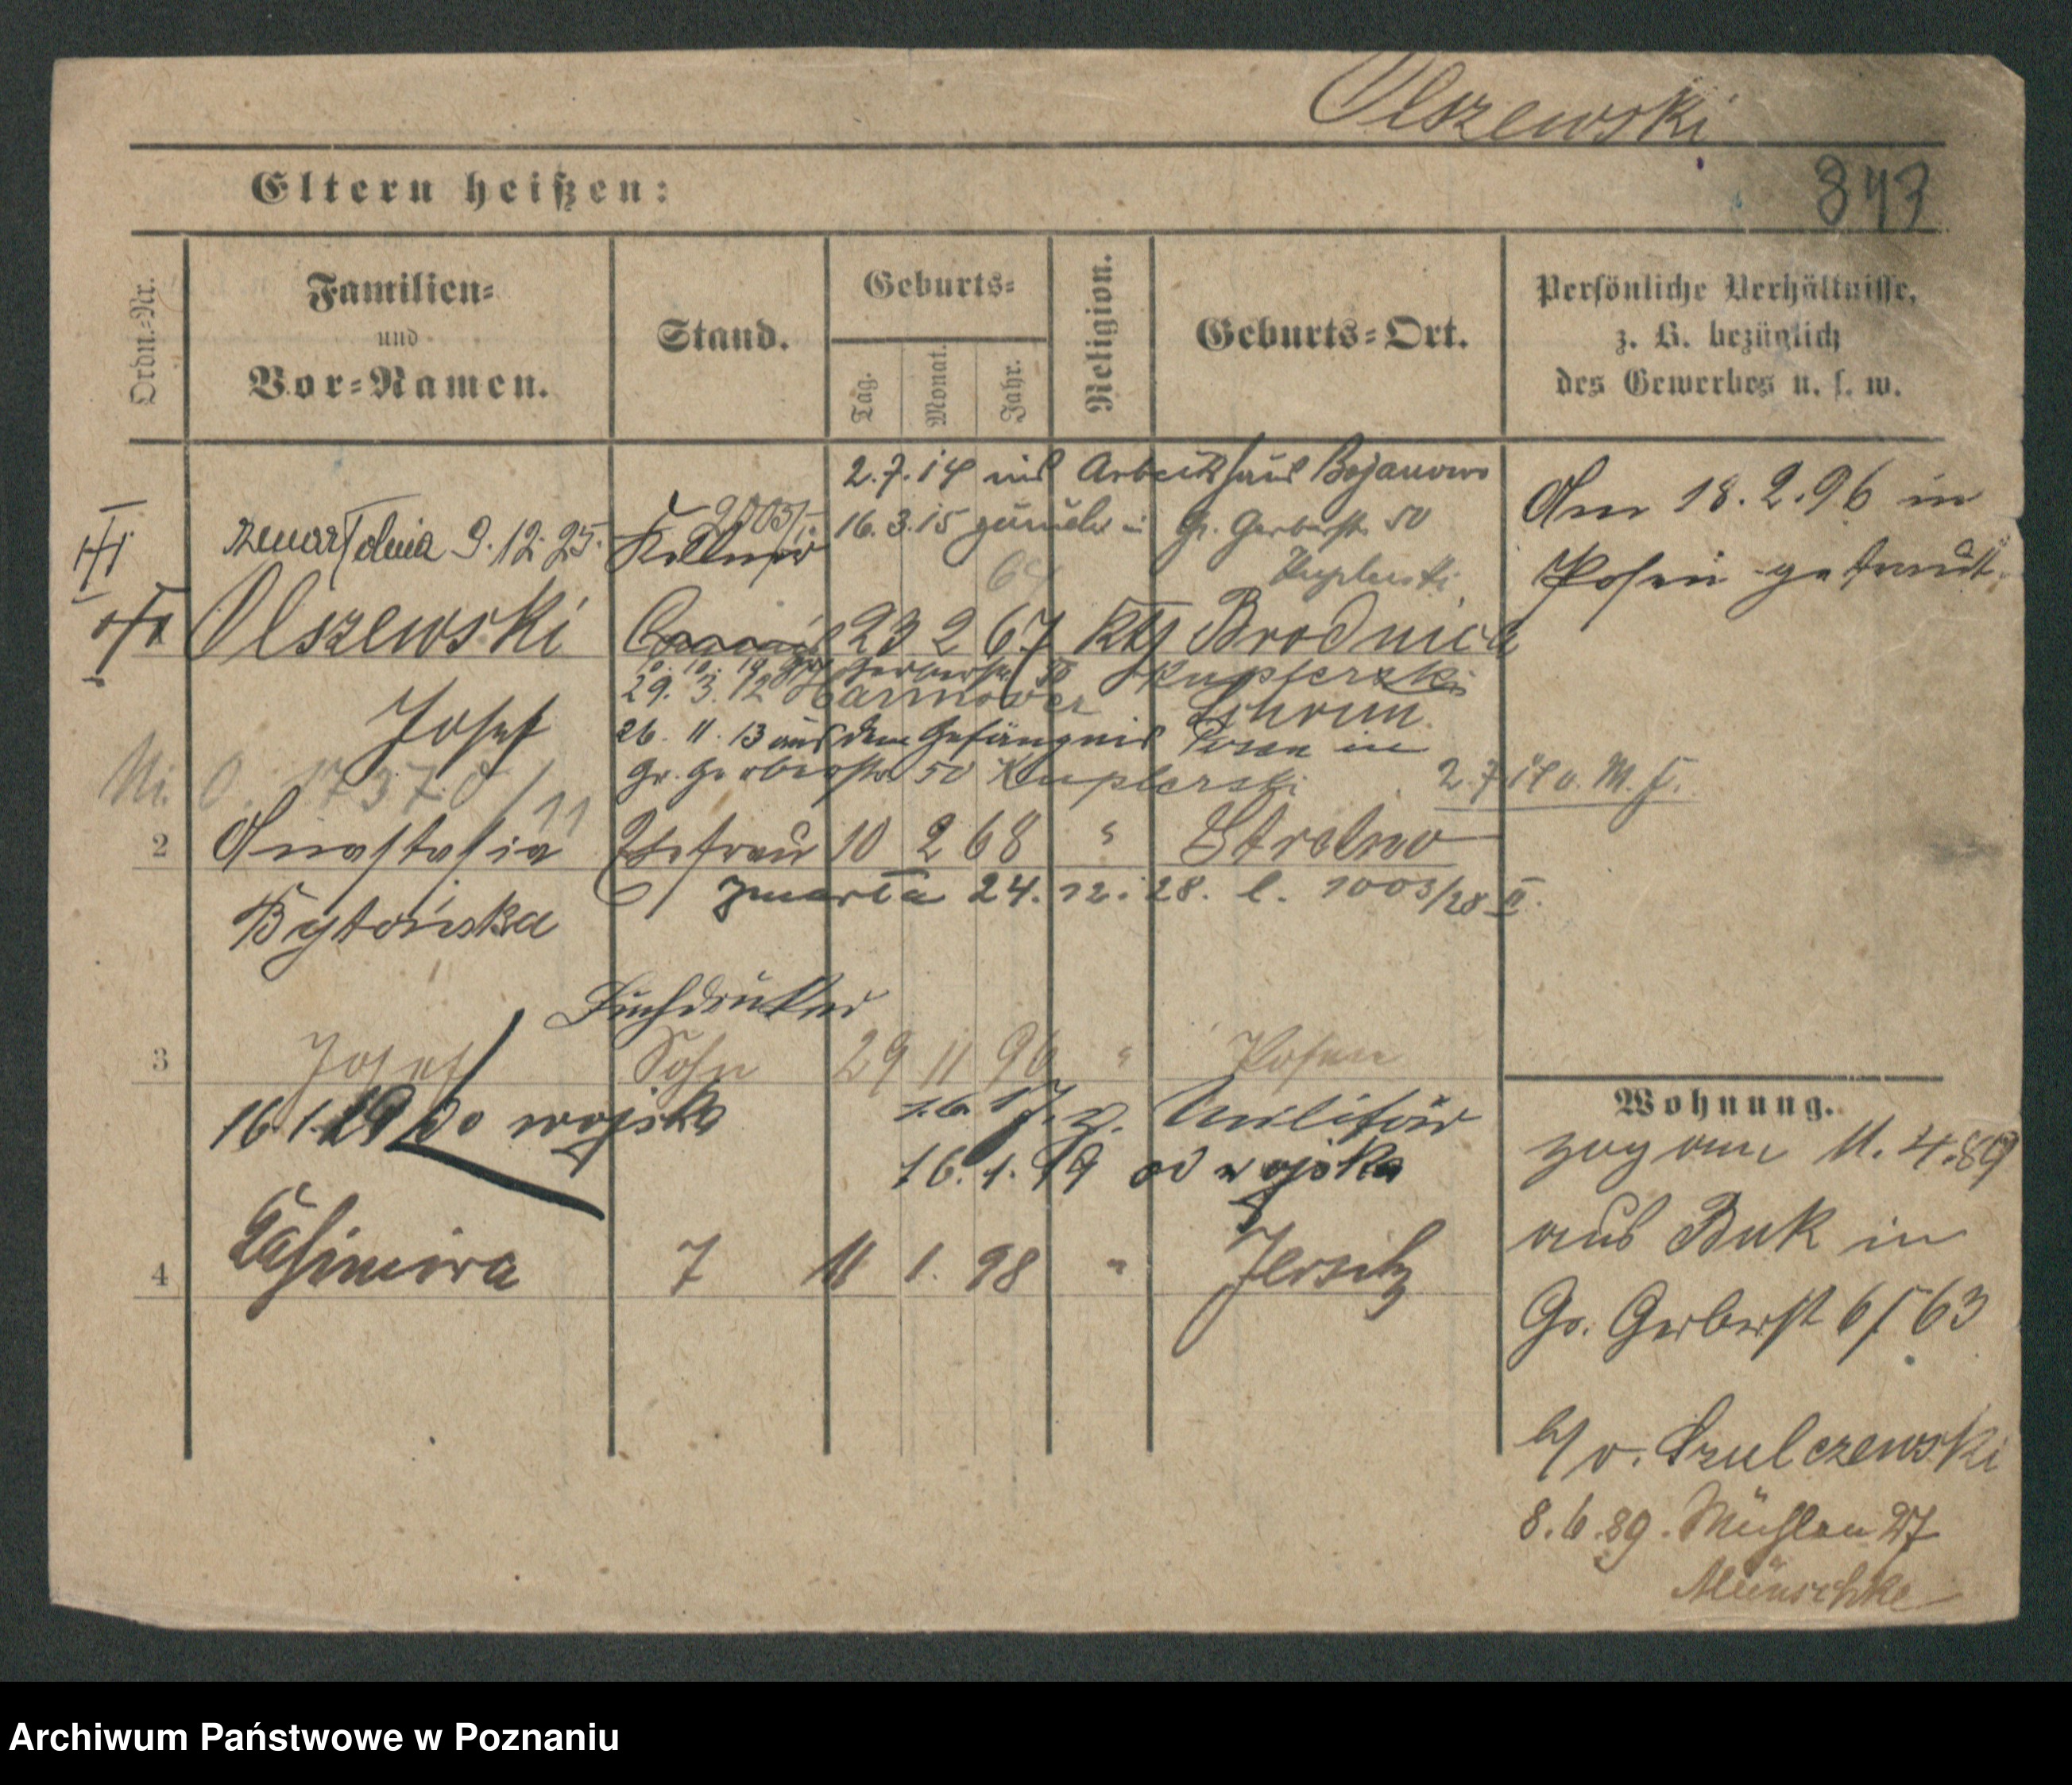 Olszewski
Eltern heißen:
843
Ordn.-Nr.
Familien-
und
Vor-Namen.
Stand.
Geburts-
Tag.
Monat.
Jahr.
Religion.
Geburts-Ort.
Persönliche Verhältnisse,
z. B. bezüglich
des Gewerbes u. s. w.
2.7.14 ins Arbeitshaus Bojanowo
16.3.15 zurück in Gr. Gerberstr. 50
Am 18.2.96 in
Posen getraut.
zmarł dnia 9.12.25.
Kellner
Olszewski
23 2 67
Brodnica
Josef
29. 3. 12 Hannover
Schrim
26. 11. 13 aus dem Gefängnis Posen in
Gr. Gerberstr 50 Kuplerski
2 Anastasia Ehefrau 10 2 68 " Strelno
zmarła 24. 12. 28. l. 1003/28 II.
Bytońska
Buchdrucker
3 Josef Sohn 29 11 96 " Posen
16.1.19 do wojska
1.6.17. z. Militär
16. 1. 19 od wojska
4 Casimira T 11 1. 98 " Jersitz
Wohnung.
zog am 11.4.89
aus Buk in
Gr. Gerberst 6/63
b/ v. Szulczewski
8.6.89. Mühlen 27
Münschke
Archiwum Państwowe w Poznaniu